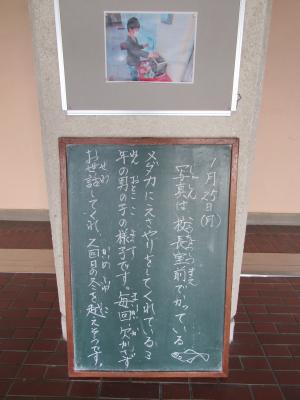 1月25日(月)
写真は校長室前でかっている
メダカにえさやりをしてくれている3
年の男の子の様子です。毎回欠かさず
お世話してくれ、2回目の冬を越えそうです。